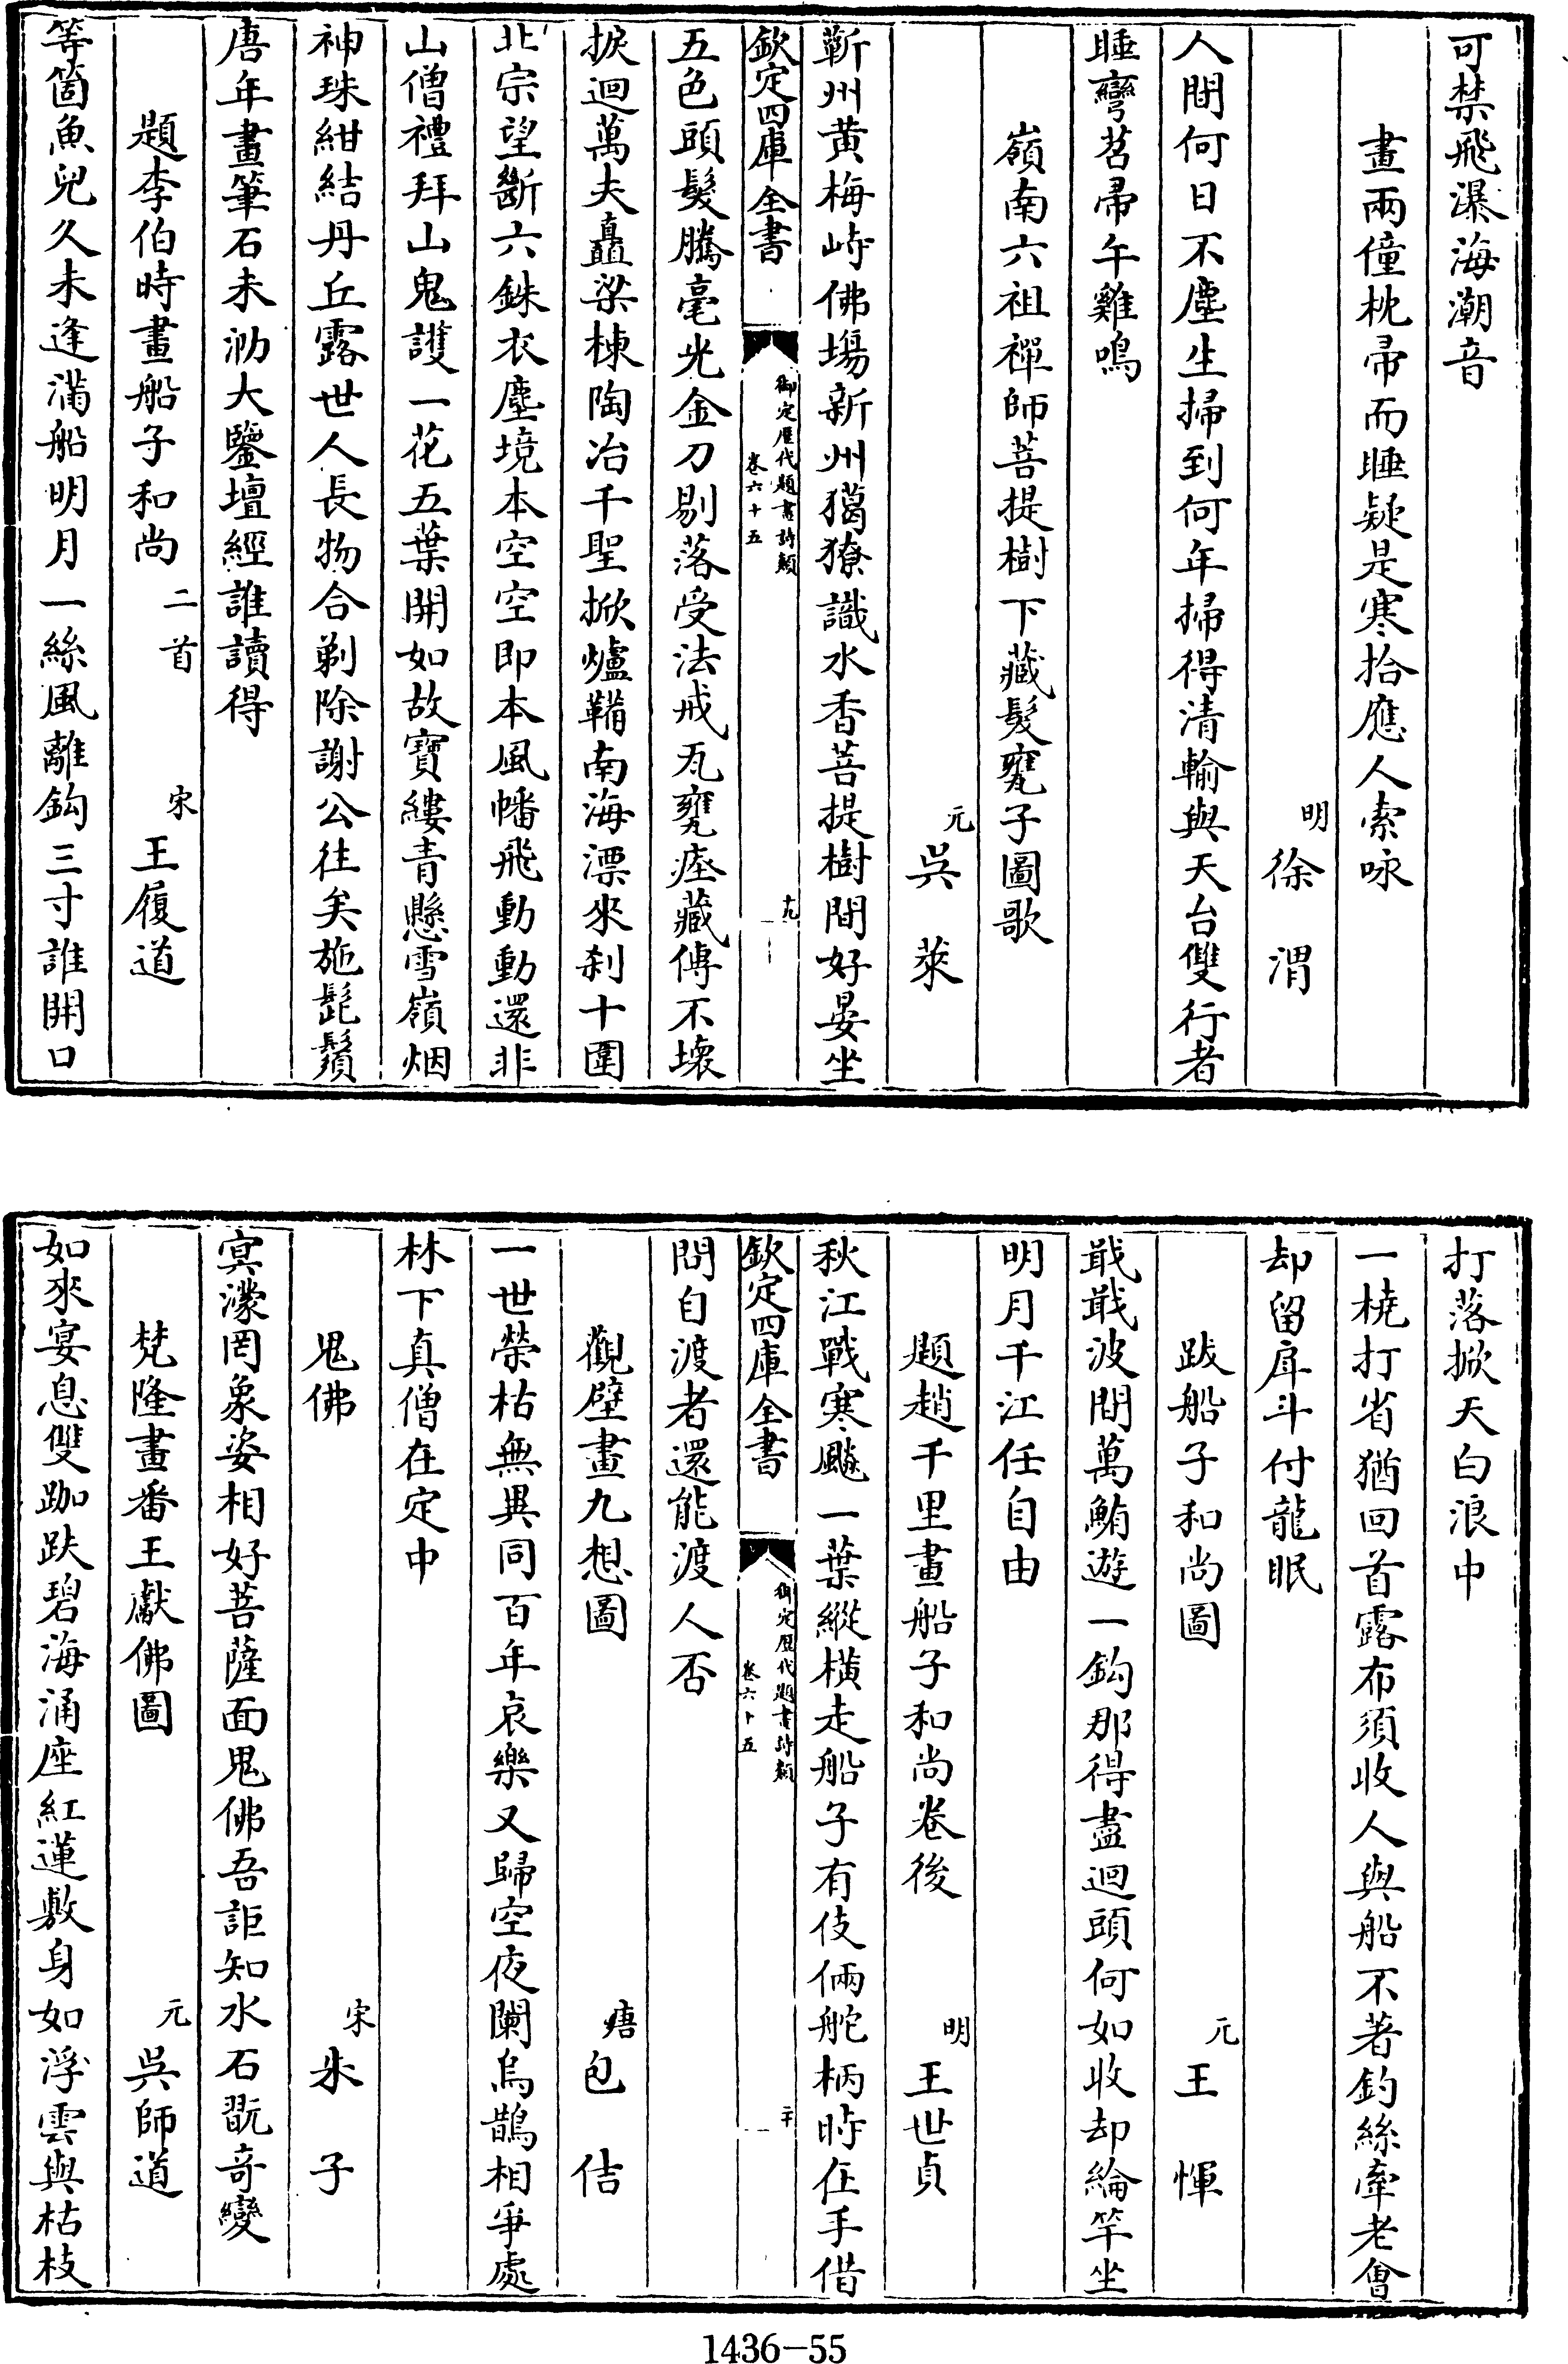 可禁飛瀑海潮音
畫兩僮枕帚而睡疑是寒拾應人索咏
明 徐渭
人間何日不塵生掃到何年掃得清輸與天台雙行者
睡彎苕帚午雞鳴
嶺南六祖禪師菩提樹下藏髮甕子圖歌
元 吳萊
蘄州黄梅峙佛場新州獦獠識水香菩提樹間好晏坐
欽定四庫全書
御定歷代題畫詩類
卷六十五
十九
五色頭髮騰毫光金刀剔落受法戒瓦甕瘞藏傳不壞
捩迴萬夫矗梁棟陶冶千聖掀爐鞴南海漂來刹十圍
北宗望斷六銖衣塵境本空空即本風幡飛動動還非
山僧禮拜山鬼護一花五葉開如故寶縷青懸雪嶺烟
神珠紺結丹丘露世人長物合剃除謝公往矣施髭鬚
唐年畫筆石未泐大鑒壇經誰讀得
題李伯時畫船子和尚 二首
宋 王履道
等箇魚兒久未逢滿船明月一絲風離鈎三寸誰開口
打落掀天白浪中
一橈打省猶回首露布須收人與船不著釣絲牽老會
却留戽斗付龍眠
跋船子和尚圖
元 王惲
戢戢波間萬鮪遊一鈎那得盡迴頭何如收却綸竿坐
明月千江任自由
題趙千里畫船子和尚卷後
明 王世貞
秋江戰寒飈一葉縱横走船子有伎倆舵柄時在手借
欽定四庫全書
御定歷代題畫詩類
卷六十五
二十
問自渡者還能渡人否
觀壁畫九想圖
唐 包佶
一世榮枯無異同百年哀樂又歸空夜闌烏鵲相爭處
林下真僧在定中
鬼佛
宋 朱子
冥濛罔象姿相好菩薩面鬼佛吾詎知水石翫奇變
梵隆畫番王獻佛圖
元 吳師道
如來宴息雙跏趺碧海涌座紅蓮敷身如浮雲與枯枝
1436-55